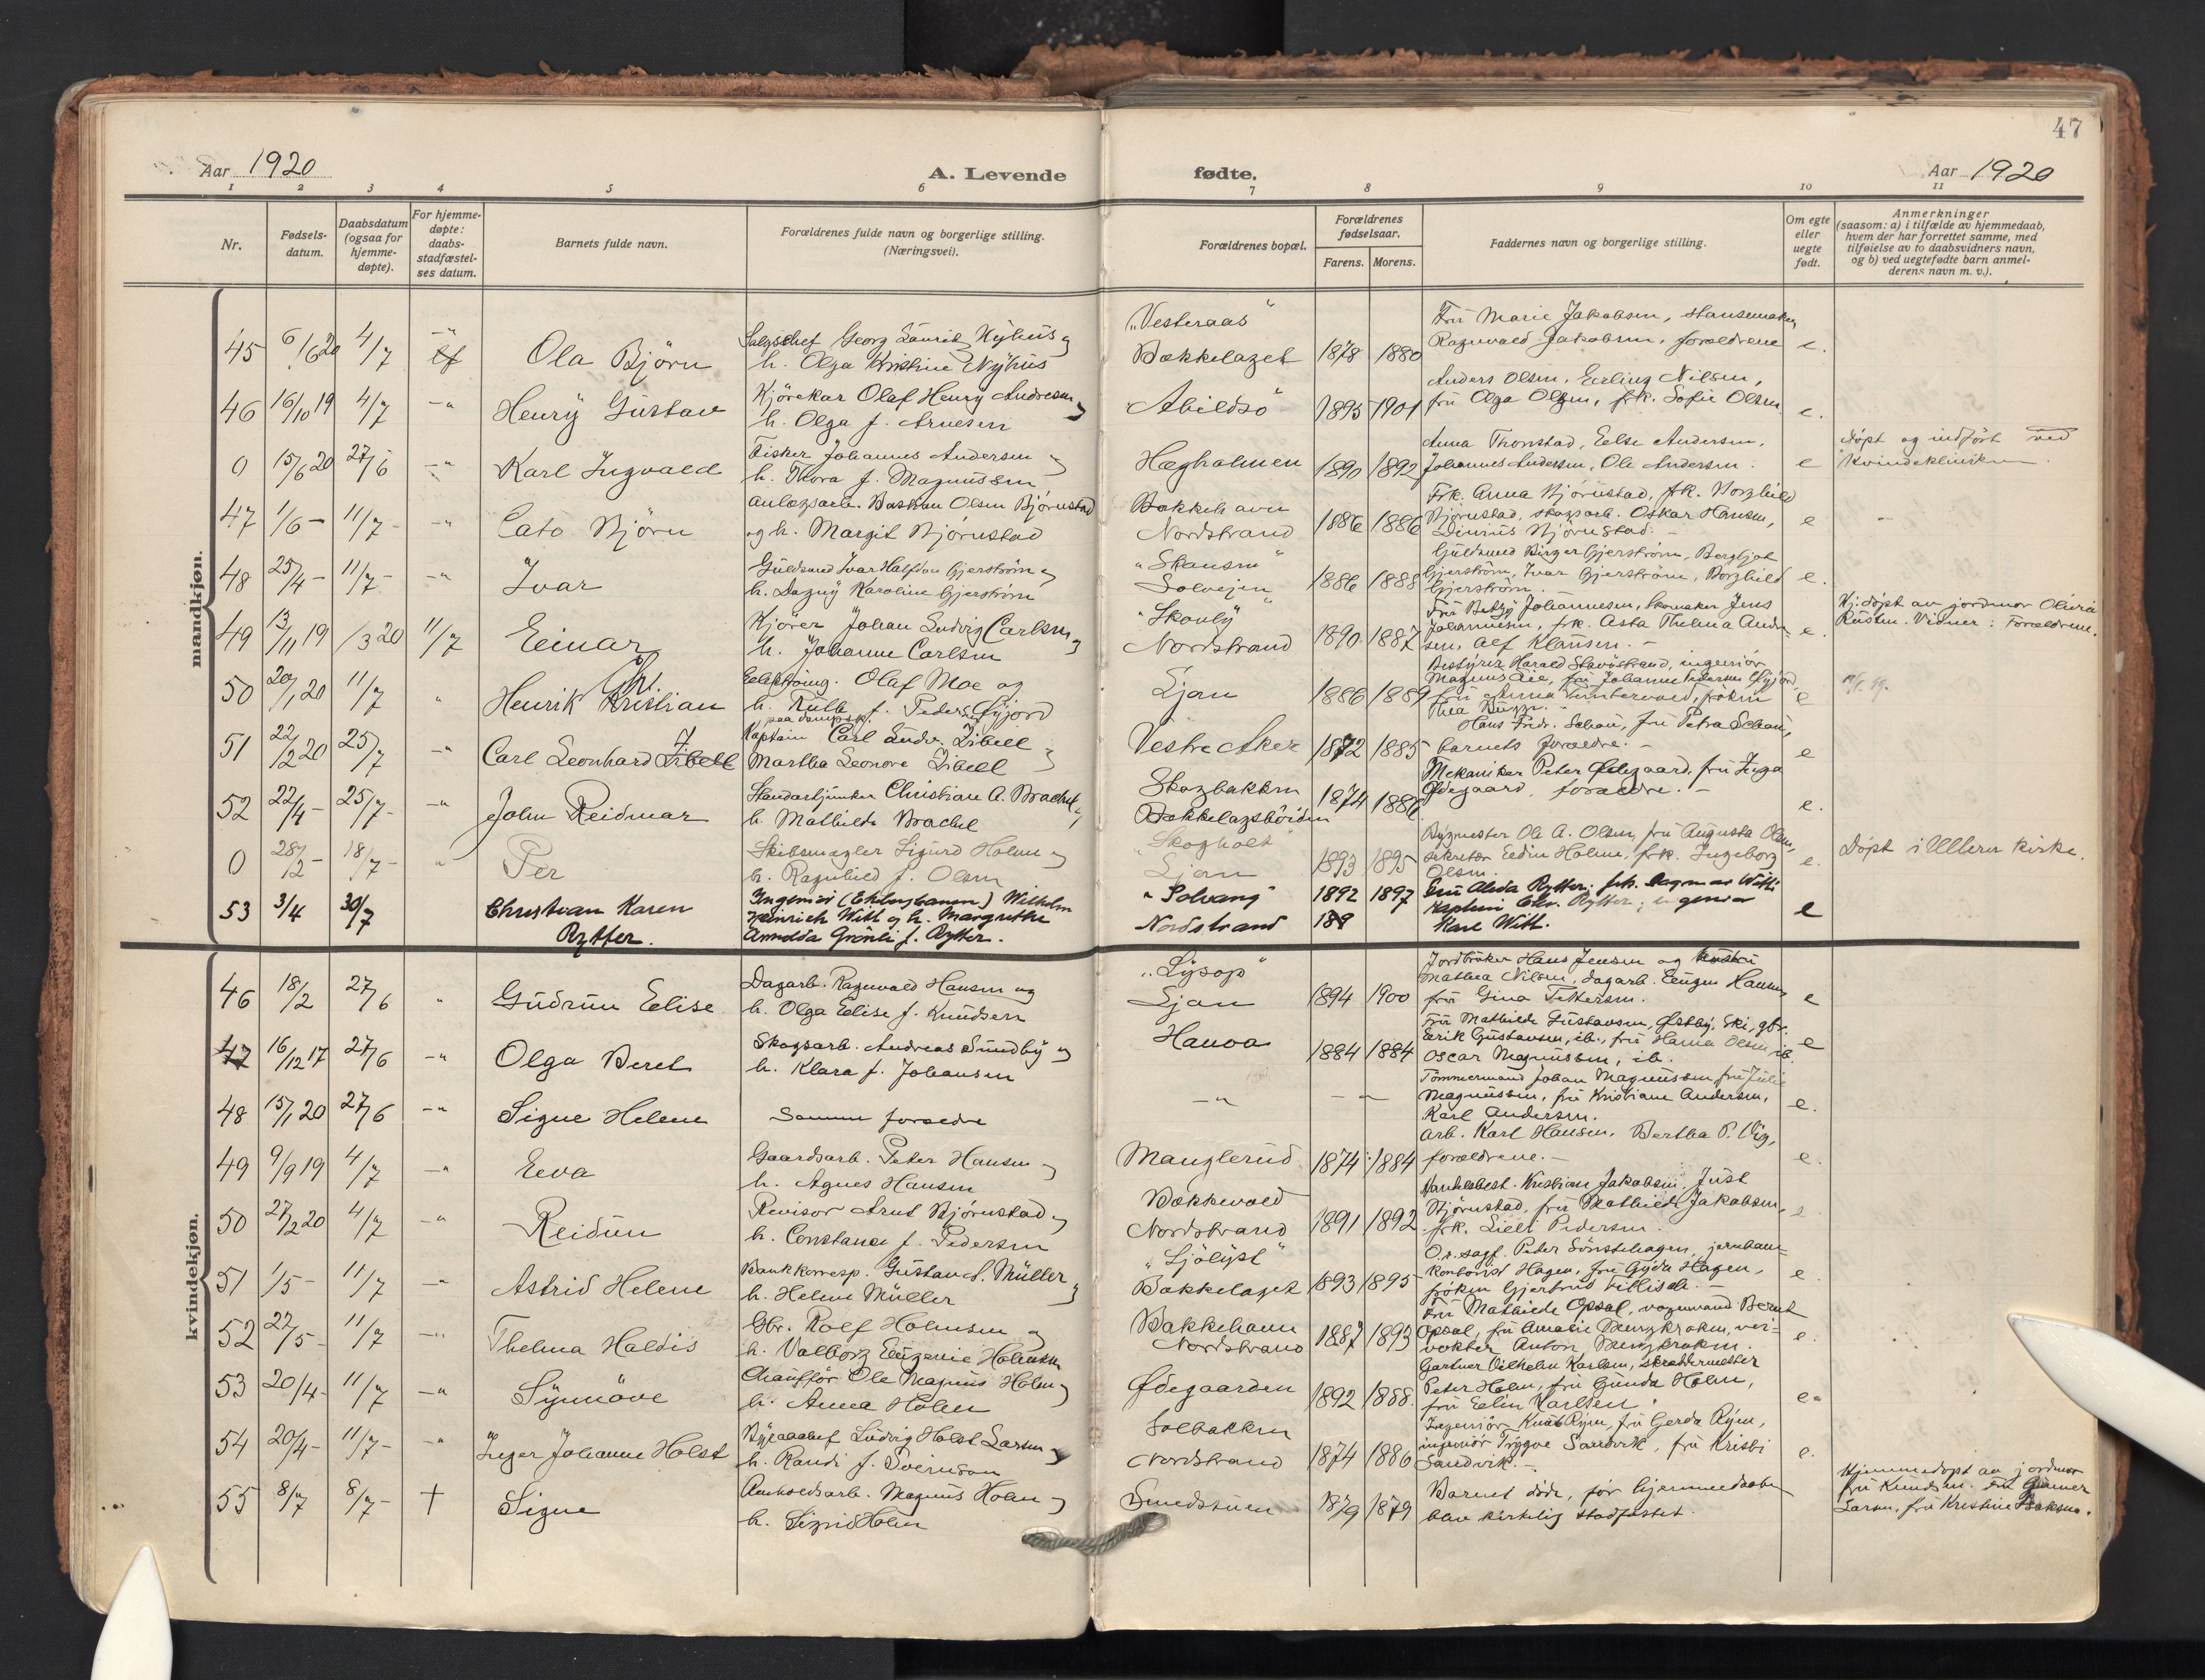 47
Aar 1920
A. Levende
fødte.
Aar 1920
1 2 3 4 5 6 7 8 9 10 11
Nr.
Fødsels-
datum.
Daabsdatum
(ogsaa for
hjemme-
døpte).
For hjemme-
døpte:
daabs-
stadfæstel-
ses datum.
Barnets fulde navn.
Forældrenes fulde navn og borgerlige stilling.
(Næringsvei).
Forældrenes bopæl.
Forældrenes
fødselsaar.
Farens. Morens.
Faddernes navn og borgerlige stilling.
Om egte
eller
uegte
født.
Anmerkninger
(saasom: a) i tilfælde av hjemmedaab,
hvem der har forrettet samme, med
tilføielse av to daabsvidners navn,
og b) ved uegtefødte barn anmel-
derens navn m. v.).
mandkjøn.
45 6/6 20 4/7 Ola Björn
Salgschef Georg Nyhus og
h. Olga Kristine Nyhus
"Vesteraas"
Bækkelaget 1878 1880
Fru Marie Jakobsen,
Ragnvald Jakobsen, forældrene e.
46 16/10 19 4/7 -"- Henry Gustav
Kjörekar Olaf Henry Andresen og
h. Olga f. Arnesen
Abildsö 1895 1901
Anders Olsen, Erling Nilsen,
fru Olga Olsen, frk. Sofie Olsen. e.
0 15/6 20 27/6 -"- Karl Ingvald
Fisker Johannes Andersen og
h. Thora f. Magnussen
Hægholmen 1890 1892
Anna Thonstad, Else Andersen,
Johannes Andersen, Ole Andersen. e
døpt og indført ved
Kvindekliniken.
47 1/6 - 11/7 - -"- Cato Björn
anlægsarb. Bastian Olsen Björnstad
og h. Margit Björnstad
Bækkehavn
Nordstrand 1886 1886
Frk. Anna Björnstad, frk. Borghild
Björnstad, skogsarb. Oskar Hansen,
Dinius Björnstad. - e
48 25/4 - 11/7 - -"- Ivar
Guldsmed Ivar Halfdan Gjerström og
h. Dagny Karoline Gjerström
"Skansen"
Solveien 1886 1888
Guldsmed Birger Gjerström, Bergljot
Gjerström, Ivar Gjerström, Borghild
Gjerström. e.
49 13/11 19 /3 20 11/7 Einar
Kjörer Johan Ludvig Carlsen og
h. Johanne Carlsen
"Skovly"
Nordstrand 1890 1887
Fru Betzy Johannesen, skomaker Jens
Johannesen, frk. Asta Thelma Ander-
sen, Alf Klausen. - e.
Hj.døpt av jordmor Olivia
Rusten. Vidner: Forældrene.
50 20/1 20 11/7 " Henrik Kristian
Ch
Elektroing. Olaf Moe og
h. Ruth f. Pedersen Gjöjord
Ljan 1886 1889
Bestyrer Harald Stavöstrand, ingeniör
Magnus Aie, fru Johanne Pedersen
fru Anna, fröken
Thea e
51 22/2 20 25/7 -"- Carl Leonhard Zibell
paa dampsk.
Kaptein Carl Ludv. Zibell og
Martha Leonore Zibell
Vestre Aker 1872 1885
Hans Fredr. Schau, fru Petra Schau,
barnets forældre. - e
52 22/4 - 25/7 - -"- John Reidmar
Standartjunker Christian A. Brachel og
h. Mathilde Brachel
Skogbakken
Bækkelagshöiden 1874 1886
Mekaniker Peter Ødegaard, fru Inga
Ødegaard, forældre. - e.
0 28/2 - 18/7 - " Per
Skibsmægler Sigurd Holme og
h. Ragnhild f. Olsen
"Skogholt"
Ljan 1893 1895
Bygmester Ole A. Olsen, fru Augusta Olsen,
sekretær Edin Holme, frk. Ingeborg
Olsen. e.
Døpt i Ullern kirke.
53 3/4 30/7 Christian Karen
Rytter.
Ingeniør (Ekebergbanen) Wilhelm
Heinrich Witt og h. Margrethe
Annetta Grönli f. Rytter.
"Solvang"
Nordstrand 1892 1897
189
Fru Alida Rytter; frk. Dagmar Witt;
Kaptein Chr. Rytter; ingeniør
Karl Witt. e
kvindekjøn.
46 18/2 27/6 " Gudrun Elise
Dagarb. Ragnvald Hansen og
h. Olga Elise f. Knudsen
"Lysop"
Ljan 1894 1900
Jordbruker Hans Jensen og hustru
Mathea Nilsen, dagarb. Eugen Hansen,
fru Gina Pettersen. e
47 16/12 17 27/6 -"- Olga Beret
Skogsarb. Andreas Sundby og
h. Klara f. Johansen
Hauva 1884 1884
Fru Mathilde Gustavsen, Østby, Ski, gbr.
Erik Gustavsen, ib., fru Hanna Olsen, ib.
Oscar Magnussen, ib. e
48 15/1 20 27/6 -"- Signe Helene
Samme forældre
-"- -"-
Tømmermand Johan Magnussen, fru Julie
Magnussen, fru Kristiane Andersen,
Karl Andersen. e.
49 9/9 19 4/7 -"- Eva
Gaardsarb. Peter Hansen og
h. Agnes Hansen
Manglerud 1874 1884
Arb. Karl Hansen, Bertha P. Vig,
forældrene. - e.
50 27/2 20 4/7 -"- Reidun
Revisor Arnt Björnstad og
h. Constance f. Pedersen
Bækkevold
Nordstrand 1891 1892
Handelsbest. Kristian Jakobsen, Just
Björnstad, fru Mathilde Jakobsen,
frk. Lilli Pedersen. e
51 1/5 - 11/7 -"- Astrid Helene
Bankkorresp. Gustav A. Müller og
h. Helene Müller
"Sjölyst"
Bækkelaget 1893 1895
O.r.sagf. Peder Sönstehagen, jernban-
kontorist Hagen, fru Gyda Hagen,
fröken Gjertrud Fillisch. - e
52 22/5 - 11/7 -"- Thelma Haldis
Gbr. Rolf Holmsen og
h. Valborg Eugenie Holmsen
Bækkehavn
Nordstrand 1887 1893
Fru Mathilde Opsal, vognmand Bernt
Opsal, fru Amalie Mengkroken, vei-
vokter Anton Mengkroken. e.
53 20/4 - 11/7 -"- Synnöve
Chaufför Ole Magnus Holm og
h. Anna Holm
Ødegaarden 1892 1888
Gartner Vilhelm Karlsen, skræddermester
Peter Holm, fru Gunda Holm,
fru Elin Karlsen. e.
54 20/4 - 11/7 - -"- Inger Johanne Holst
Ludvig Holst Larsen og
h. Randi f. Svenson
Solbakken
Nordstrand 1874 1886
Ingeniör Knut Rym, fru Gerda Rym,
ingeniör Trygve Sandvik, fru Kristi
Sandvik. - e.
55 8/7 8/7 - + Signe
Arbeidsarb. Magnus Holm og
h. Sigrid Holm
Smedstuen 1879 1879
Barnet döde, för hjemmedaaben
blev kirkelig stadfæstet.
Hjemmedøpt av jordmor
fru Knudsen. Fru Gunner
Larsen, fru Kristine Baksaas.